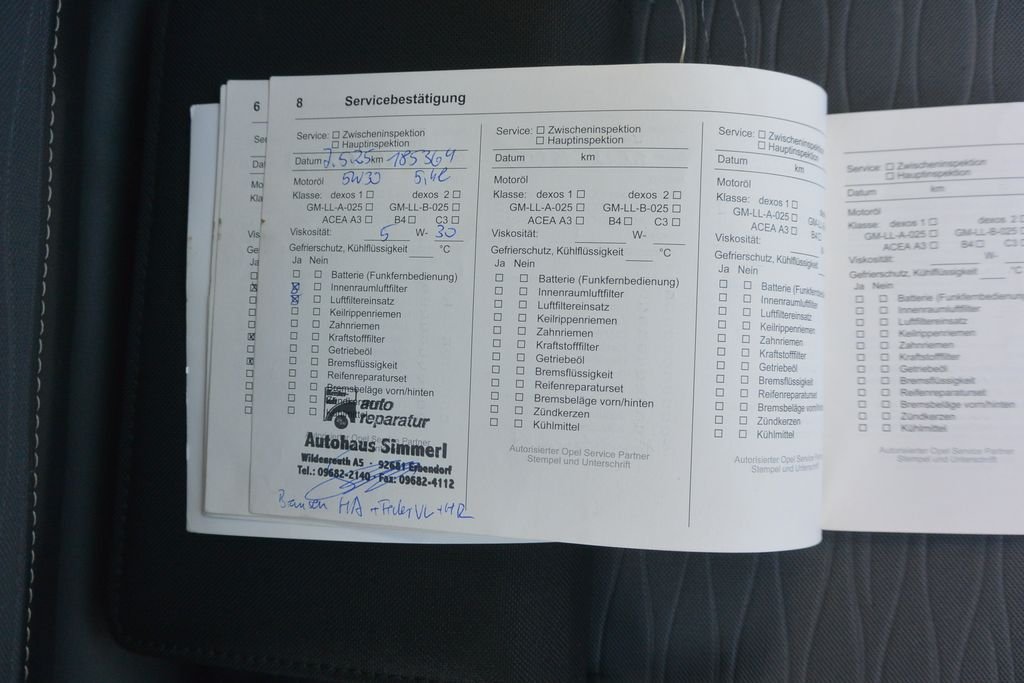 6
Ser
Da
Mo
Kla
Visk
Ja
8 Servicebestätigung
Service: Zwischeninspektion
Hauptinspektion
Datum 7.5.25 km 185364
Motoröl 5W30 5,4l
Klasse: dexos 1 dexos 2
GM-LL-A-025 GM-LL-B-025
ACEA A3 B4 C3
Viskosität: 5 W- 30
Gefrierschutz, Kühlflüssigkeit °C
Ja Nein
Batterie (Funkfernbedienung)
Innenraumluftfilter
Luftfiltereinsatz
Keilrippenriemen
Zahnriemen
Kraftstofffilter
Getriebeöl
Bremsflüssigkeit
Reifenreparaturset
Bremsbeläge vorn/hinten
auto
reparatur
Autohaus Simmerl
Wildenreuth A5 · 92681 Erbendorf
Tel.: 09682-2140 · Fax: 09682-4112
HA
Service: Zwischeninspektion
Hauptinspektion
Datum km
Motoröl
Klasse: dexos 1 dexos 2
GM-LL-A-025 GM-LL-B-025
ACEA A3 B4 C3
Viskosität: W-
Gefrierschutz, Kühlflüssigkeit °C
Ja Nein
Batterie (Funkfernbedienung)
Innenraumluftfilter
Luftfiltereinsatz
Keilrippenriemen
Zahnriemen
Kraftstofffilter
Getriebeöl
Bremsflüssigkeit
Reifenreparaturset
Bremsbeläge vorn/hinten
Zündkerzen
Kühlmittel
Autorisierter Opel Service Partner
Stempel und Unterschrift
Service: Zwischeninspektion
Hauptinspektion
Datum km
Motoröl
Klasse: dexos 1
GM-LL-A-025
ACEA A3
Viskosität:
Gefrierschutz, Kühlflüssigkeit
Ja Nein
Batterie (Funkfernbe
Innenraumluftfilter
Luftfiltereinsatz
Keilrippenriemen
Zahnriemen
Kraftstofffilter
Getriebeöl
Bremsflüssigkeit
Reifenreparaturset
Bremsbeläge vorn/hi
Zündkerzen
Kühlmittel
Autorisierter Opel Service
Stempel und Unterschrift
Service: Zwischeninspektion
Hauptinspektion
Datum km
Motoröl
Klasse: dexos 1 dexos 2
GM-LL-A-025 GM-LL-B-025
ACEA A3 B4 C3
Viskosität: W-
Gefrierschutz, Kühlflüssigkeit °C
Ja Nein
Batterie (Funkfernbedienun
Innenraumluftfilter
Luftfiltereinsatz
Keilrippenriemen
Zahnriemen
Kraftstofffilter
Getriebeöl
Bremsflüssigkeit
Reifenreparaturset
Bremsbeläge vorn/hinten
Zündkerzen
Kühlmittel
Autorisierter Opel Service Partner
Stempel und Unterschrift